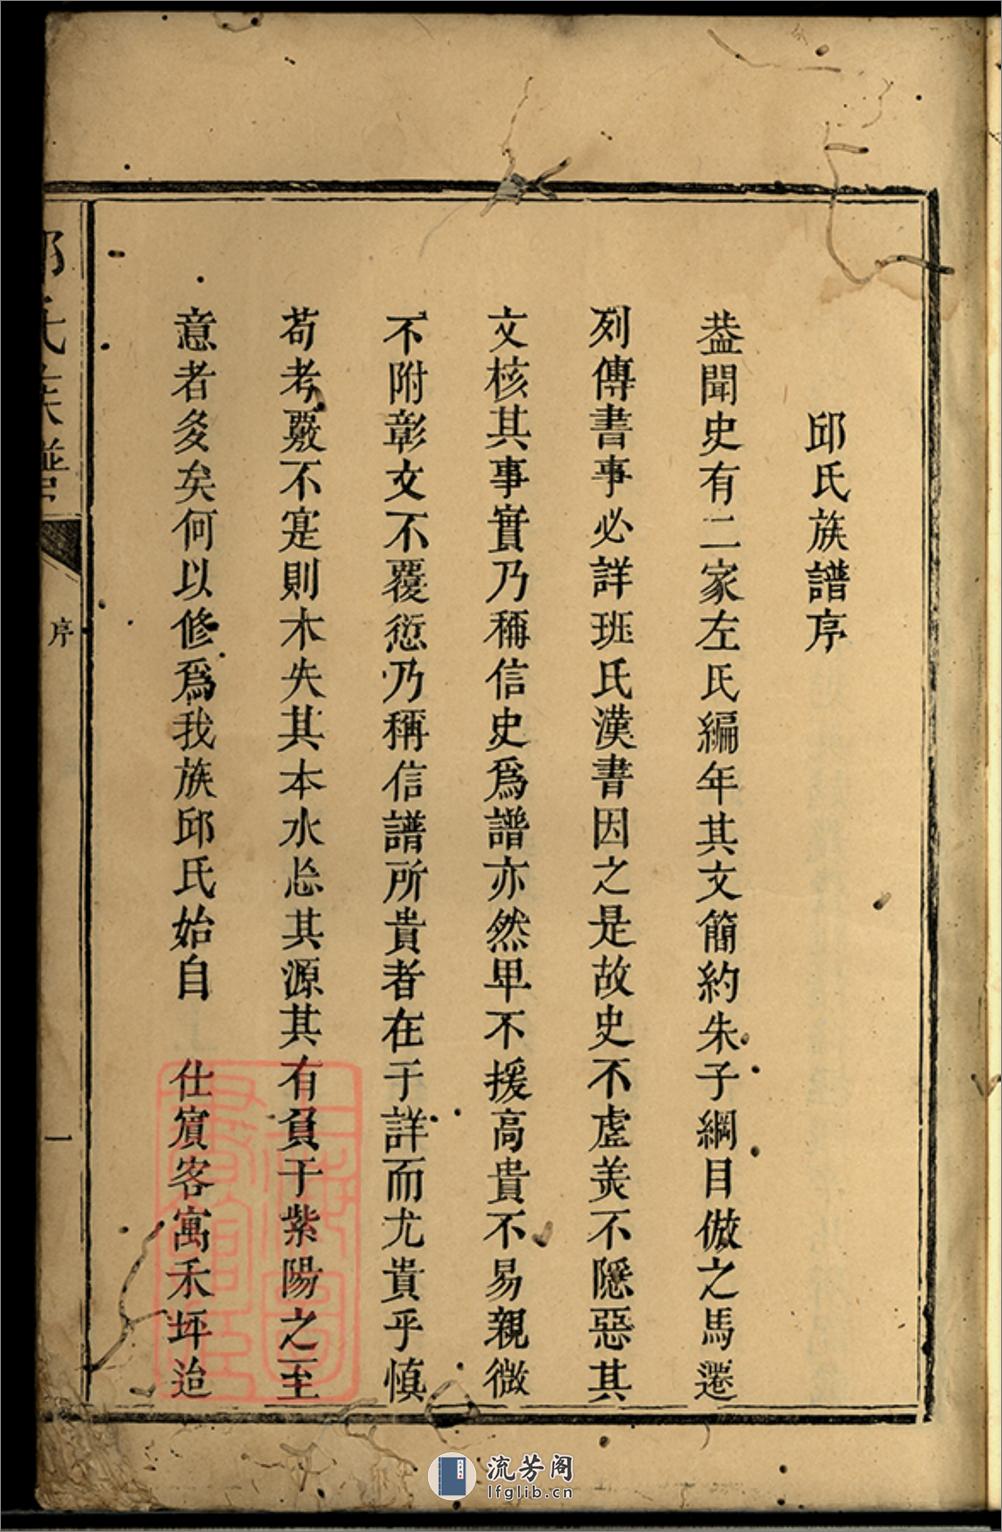 邱氏族譜序
葢聞史有二家左氏編年其文簡約朱子綱目倣之馬遷
列傳書事必詳班氏漢書因之是故史不虛美不隱惡其
文核其事實乃稱信史為譜亦然卑不援高貴不易親微
不附彰文不覆愆乃稱信譜所貴者在于詳而尤貴乎慎
苟考覈不寔則木失其本水忘其源其有負于紫陽之至
意者多矣何以修為我族邱氏始自 仕賔客寓禾坪迨
邱氏族譜
序
一
上海圖書館藏
流芳阁
lfglib.cn